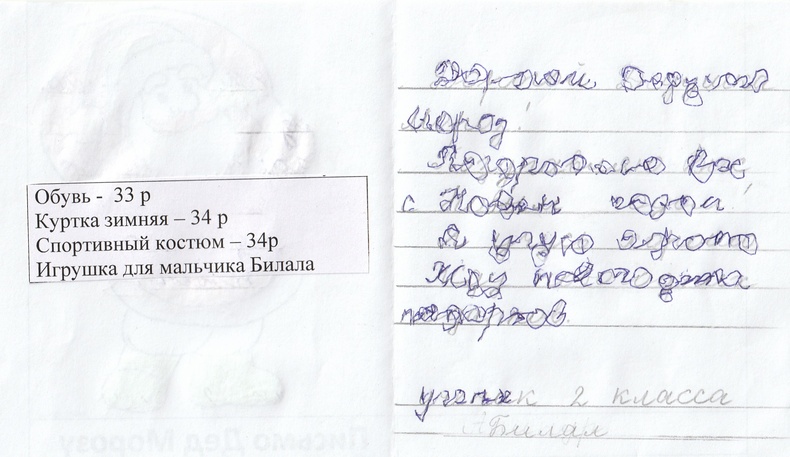 Обувь - 33 р
Куртка зимняя – 34 р
Спортивный костюм – 34р
Игрушка для мальчика Билала
Дорогой Дедушка
мороз!
Поздравляю Вас
с Новым годом!
Я учусь
Жду новогодних
подарков
ученик 2 класса
Билал
Письмо Дед Морозу